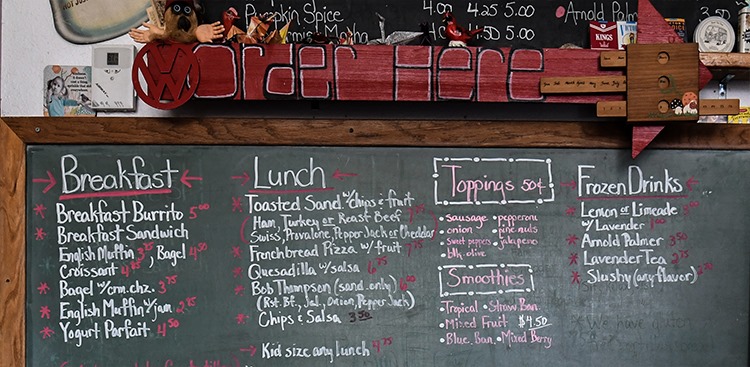 Pumpkin Spice 4.00 4.25 5.00
Matcha 4.50 5.00
Arnold Palmer
KINGS
Order Here
Breakfast
Breakfast Burrito 5.00
Breakfast Sandwich
English Muffin 3.75, Bagel 4.50
Croissant 4.75
Bagel w/crm.chz. 3.75
English Muffin w/jam 2.75
Yogurt Parfait 4.50
Lunch
Toasted Sand. w/chips & fruit
(Ham, Turkey or Roast Beef
Swiss, Provalone, Pepper Jack or Cheddar)
Frenchbread Pizza w/fruit
Quesadilla w/salsa 6.75
Bob Thompson (sand. only) 6.00
(Rst. Bf., Jal., Onion, Pepper Jack)
Chips & Salsa 3.50
Kid size any lunch 4.75
Toppings 50¢
sausage • pepperoni
onion • pine nuts
sweet peppers • jalapeno
blk olive
Smoothies
Tropical • Straw. Ban.
Mixed Fruit $4.50
Blue. Ban. • Mixed Berry
Frozen Drinks
Lemon or Limeade
w/ Lavender
Arnold Palmer 3.50
Lavender Tea 2.75
Slushy (any flavor)